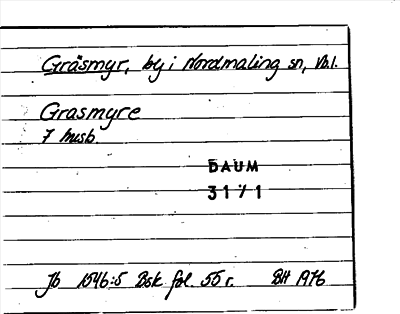 Gräsmyr, by i Nordmaling sn, Vb.l.
Grasmyre
7 husb.
DAUM
31/1
Jb 1546:5 Bsk fol. 55 r. BH 1976